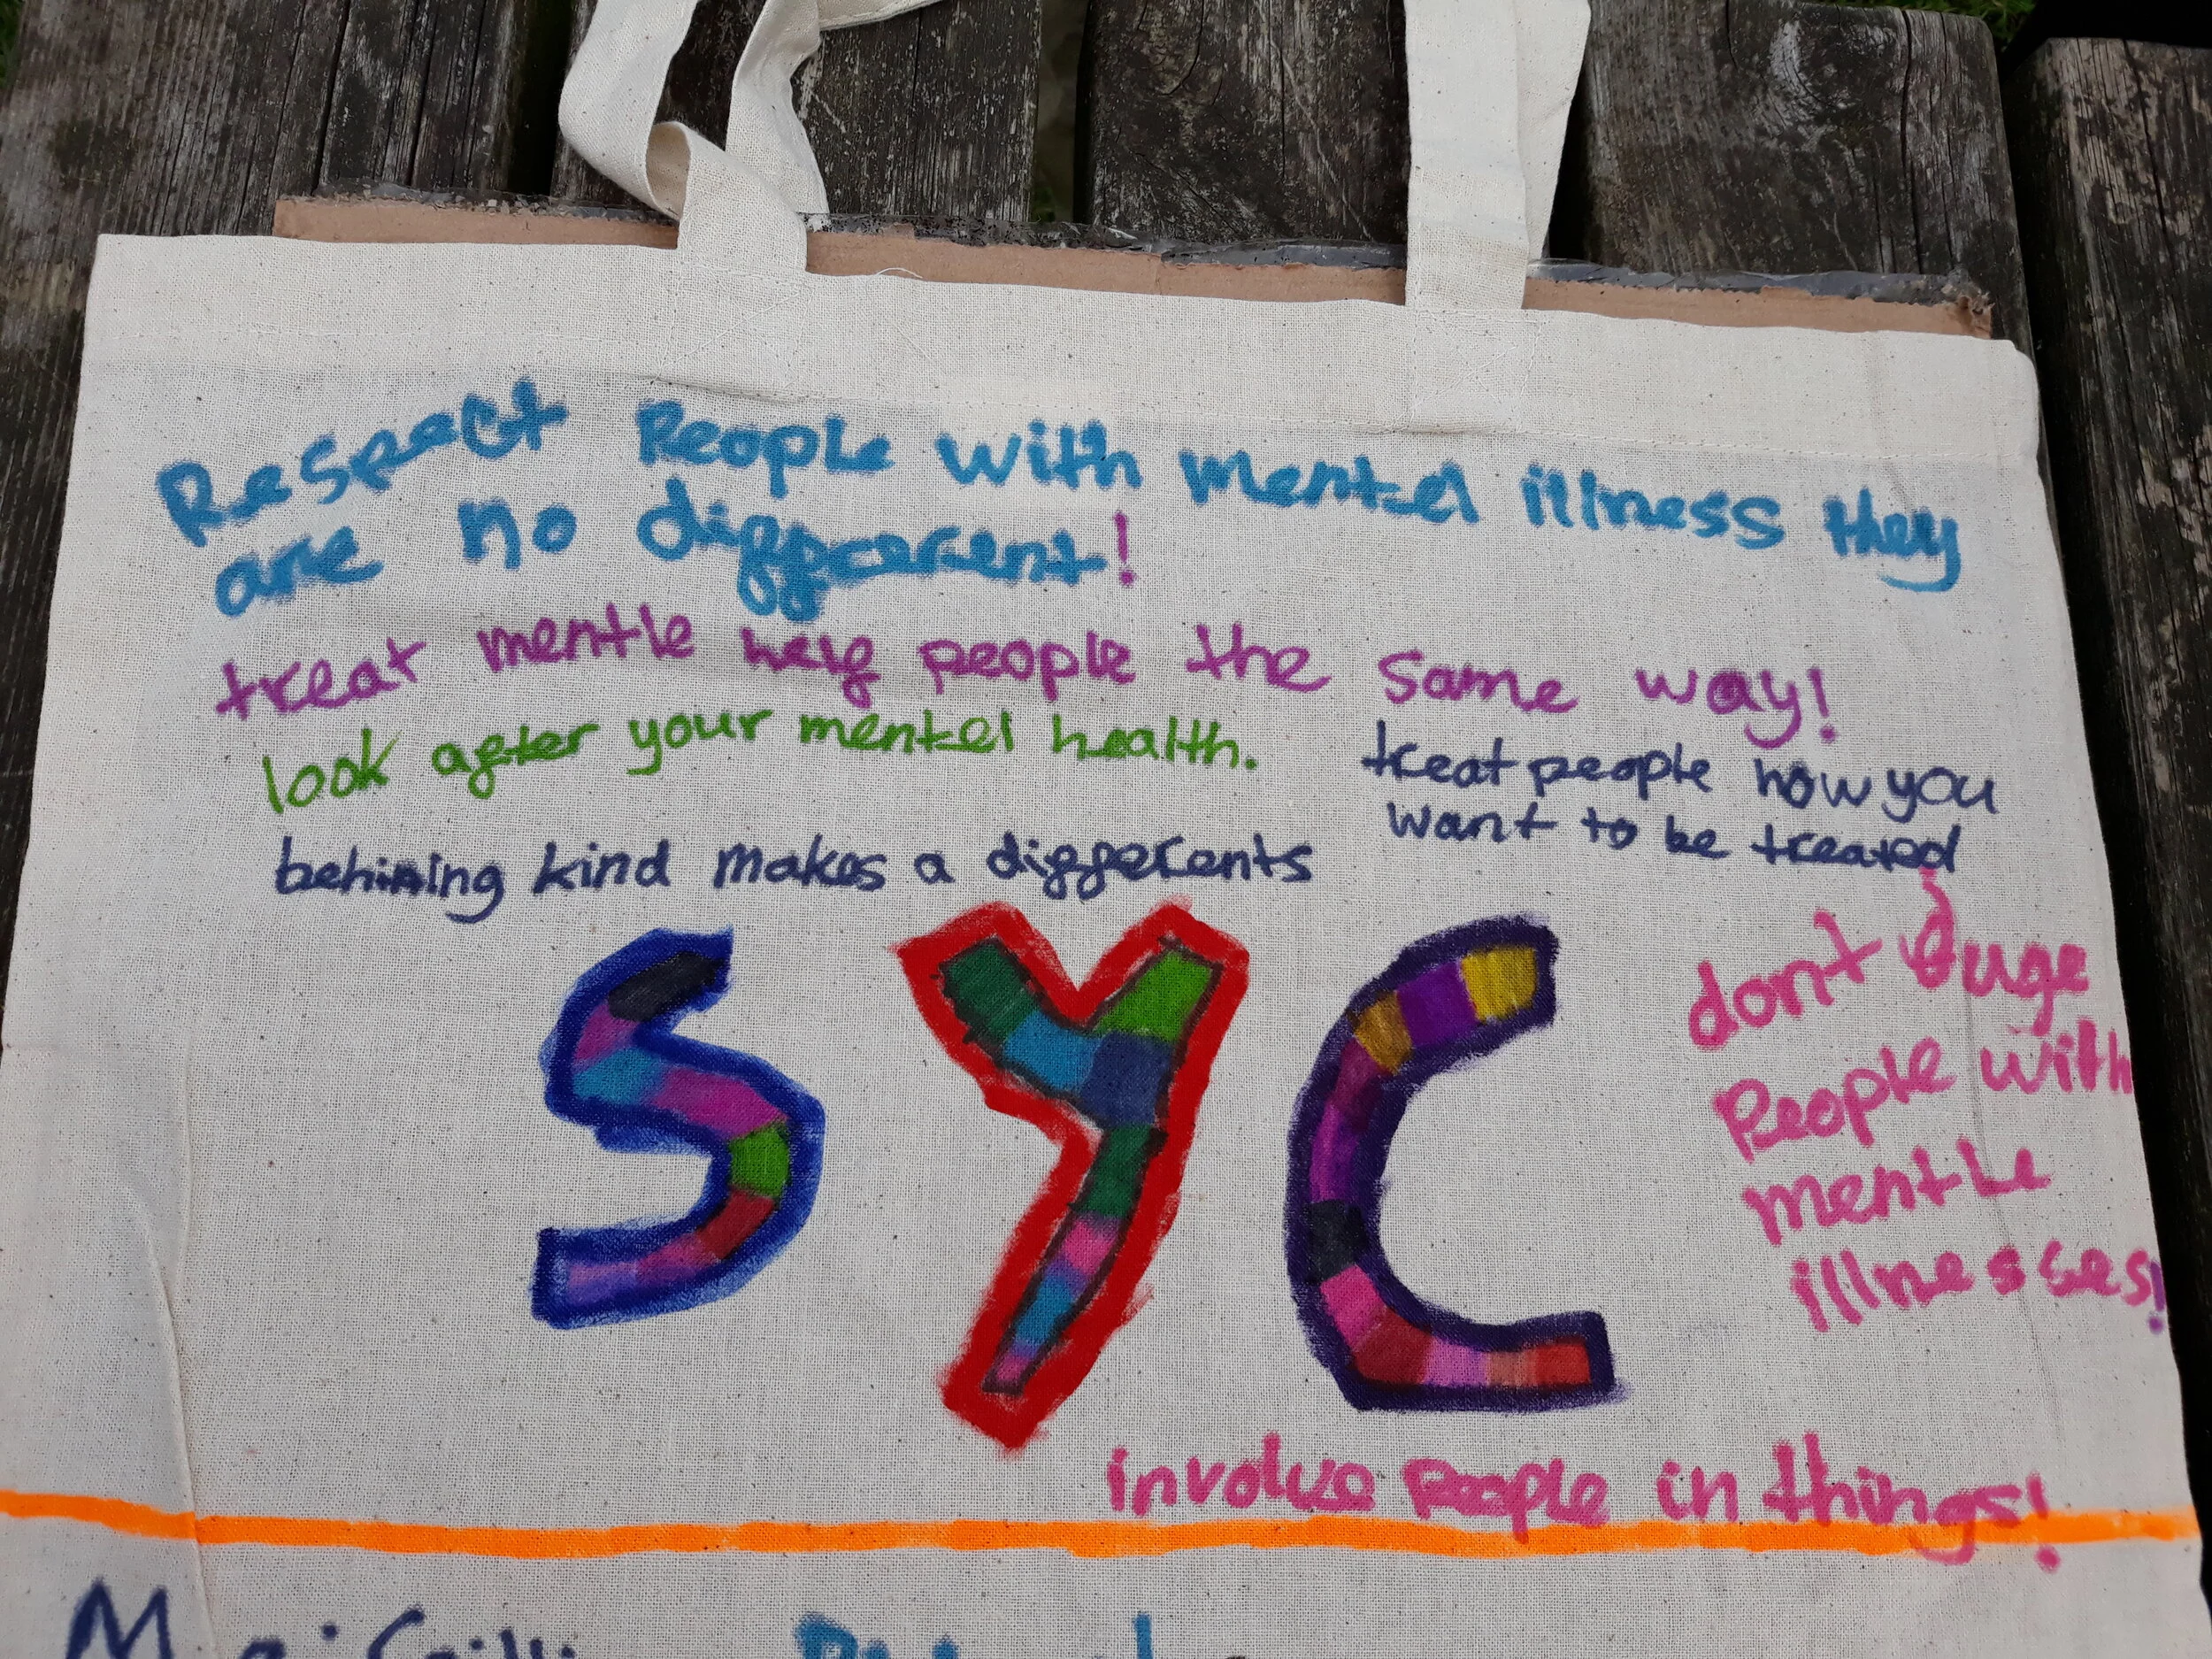 Respect People with mentel illness they
are no difference​rent!
treat mentle hely people the same way!
look after your mentel health.
treat people how you
want to be treated
behining kind makes a differents
SYC
dont Juge
People with
mentle
illnesses!
involve people in things!